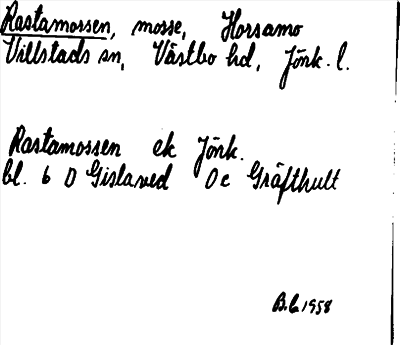 Rastamossen, mosse, Horsamo
Villstads sn, Västbo hd, Jönk. l.
Rastamossen ek Jönk.
bl. 6 D Gislaved Oc Gräfthult
B.L. 1958